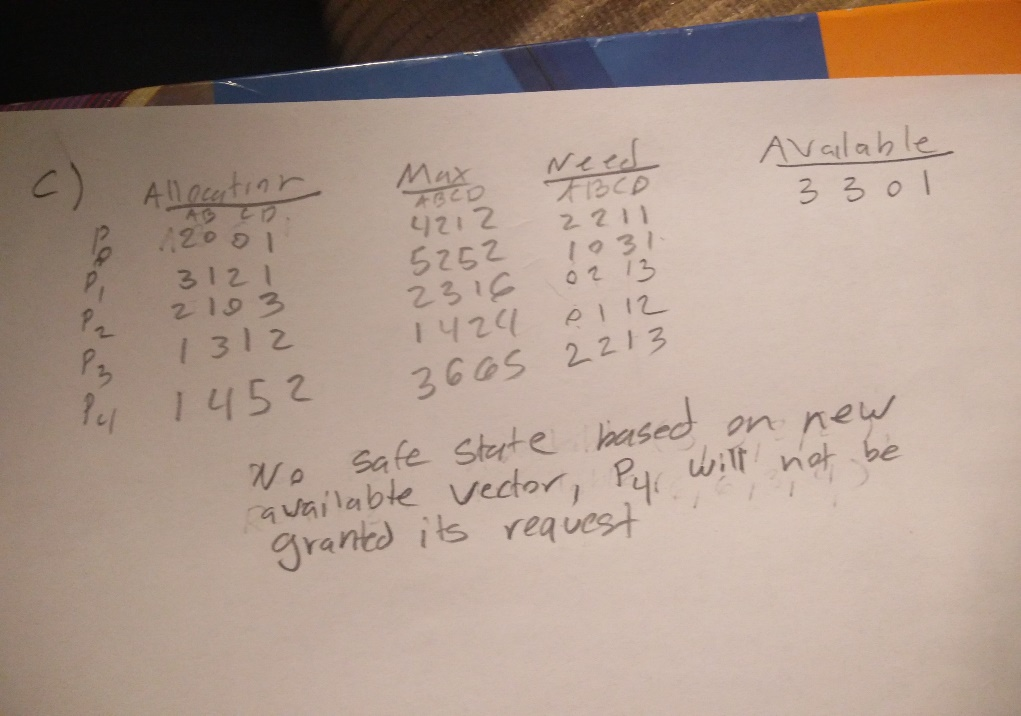 C) Allocation Max Need Available
AB CD ABCD ABCD 3 3 0 1
P0 2001 4212 2211
P1 3121 5252 1031
P2 2103 2316 0213
P3 1312 1424 0112
P4 1452 3665 2213
No safe state based on new
available vector, P4, will not be
granted its request